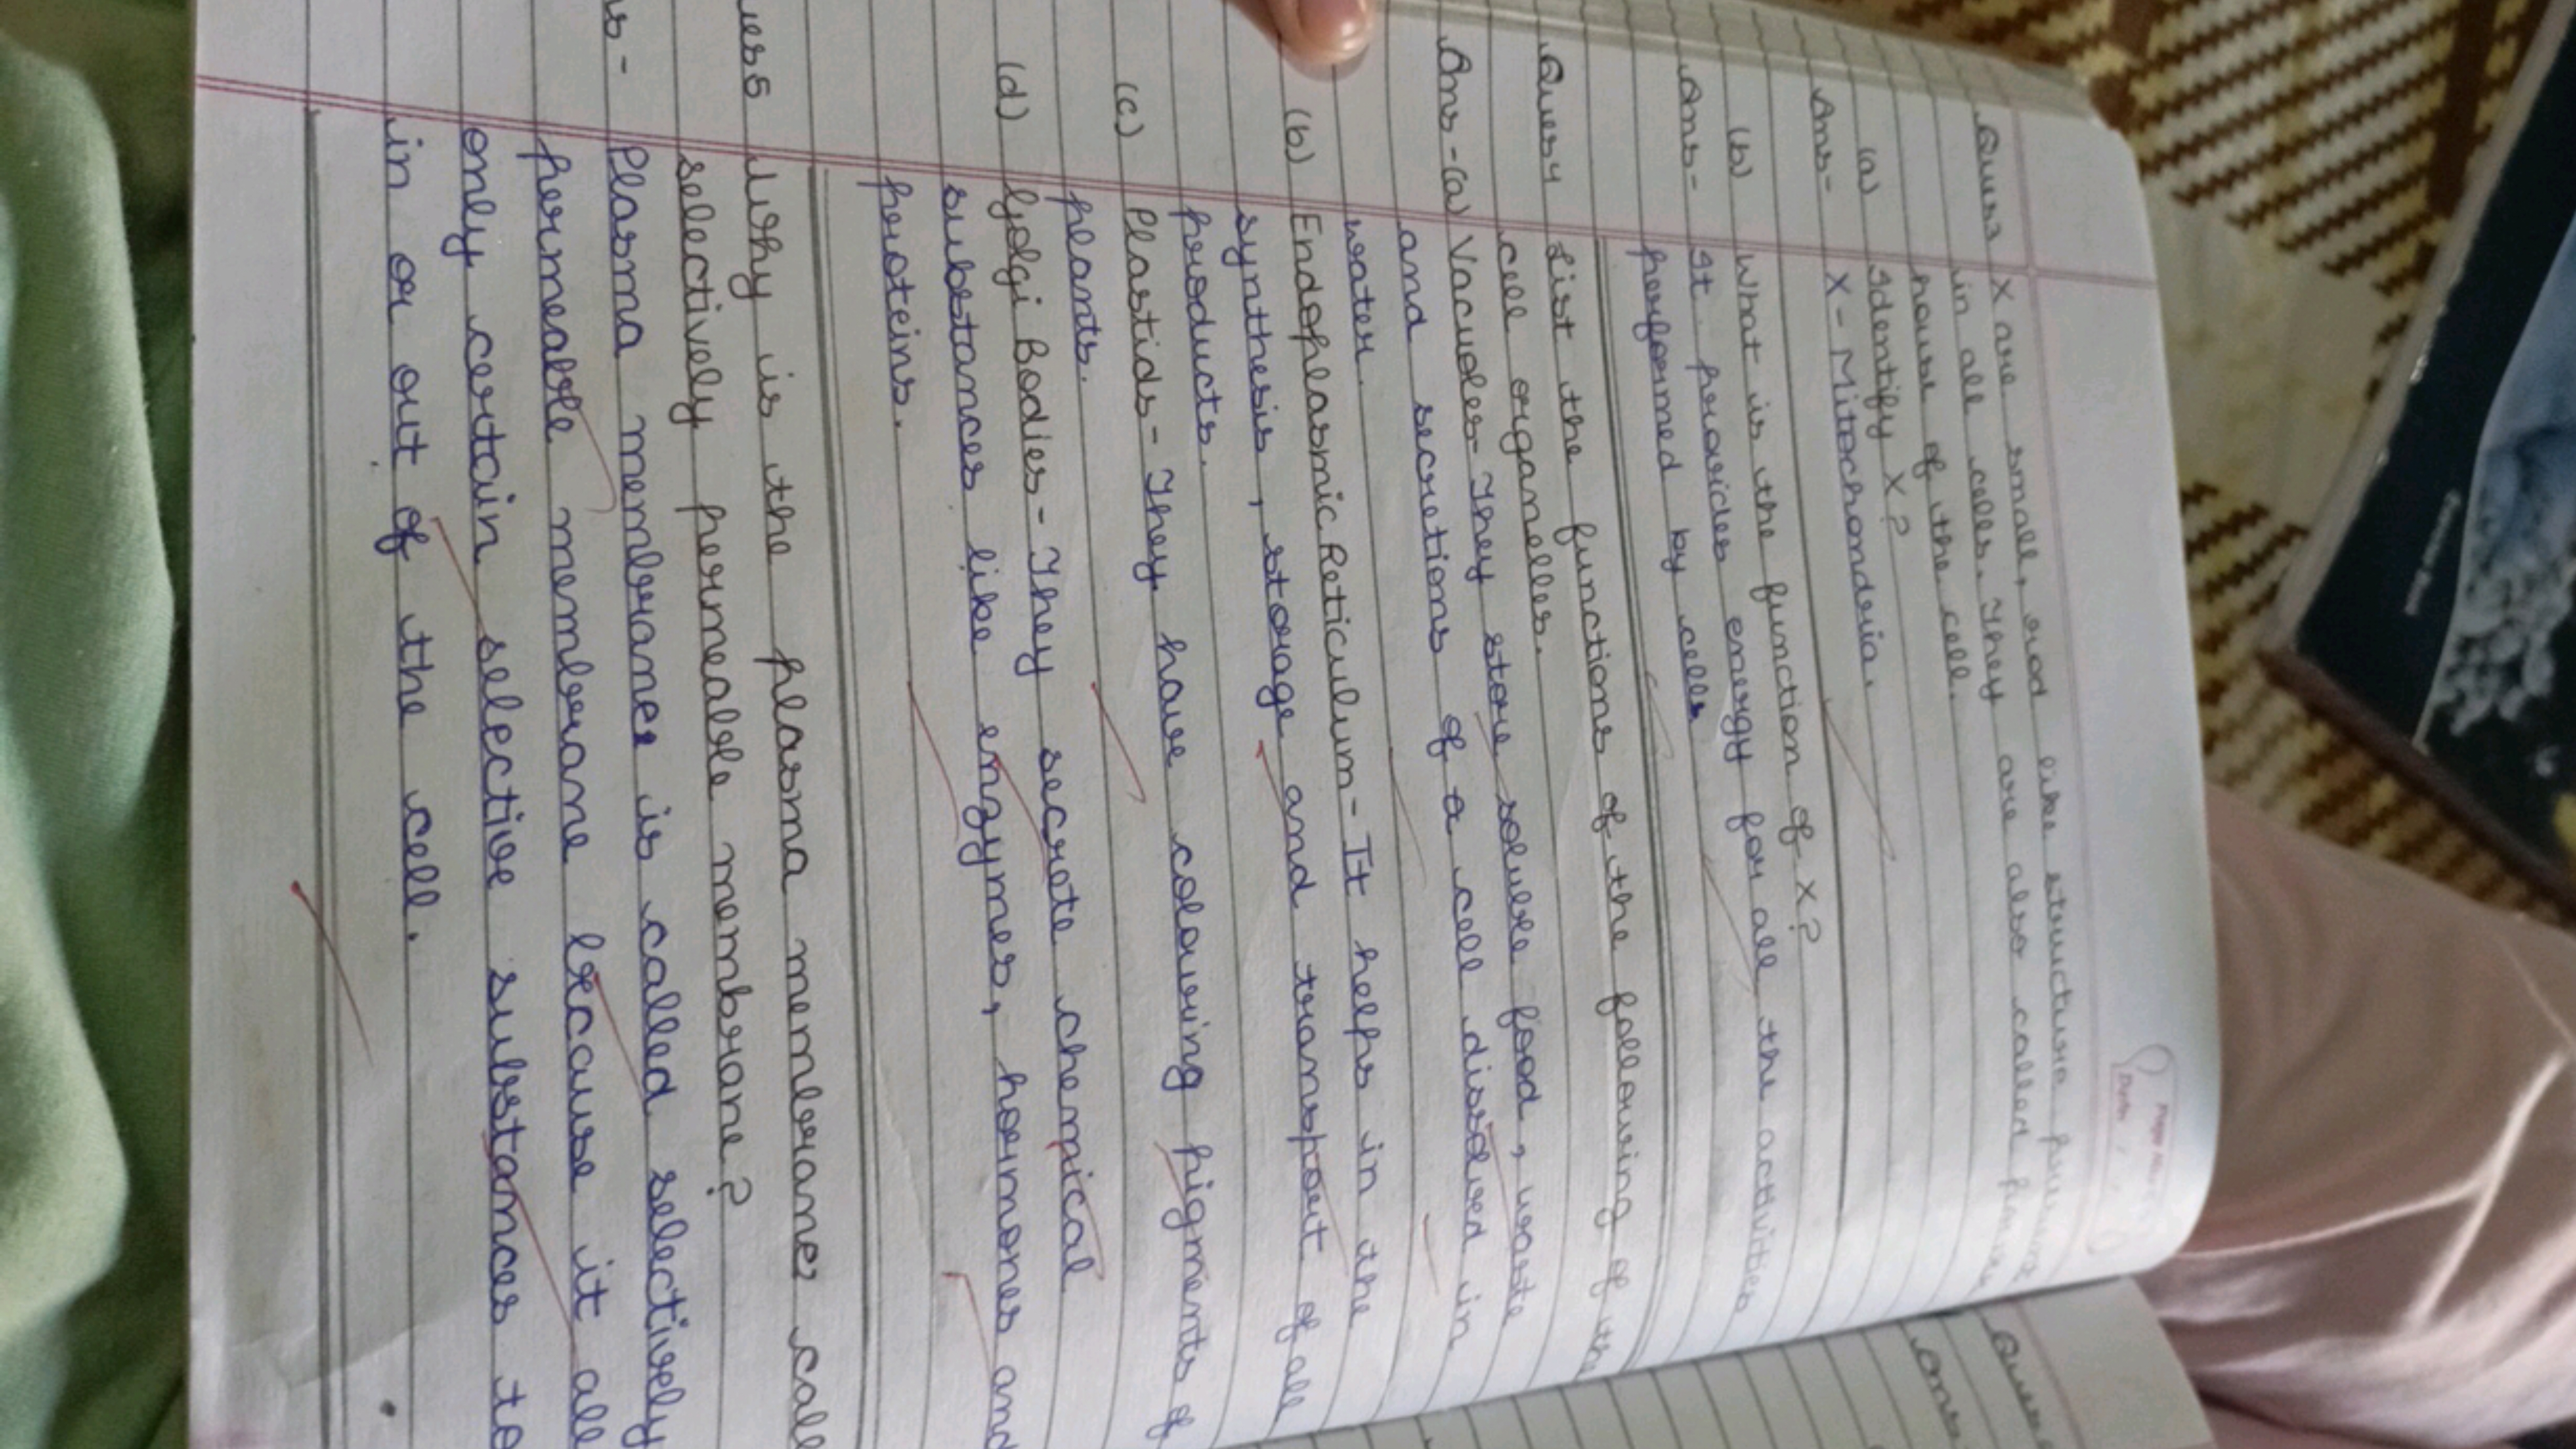 Page No.
Date
Ques3 X are small, rod like structure present
in all cells. They are also called power
house of the cell.
(a) Identify X?
Ans- X- Mitochondria.
(b) What is the function of X?
Ans- It provides energy for all the activities
performed by cells
Ques4 List the functions of the following of the
cell organelles.
Ans-(a) Vacuoles- They store soluble food, waste
and secretions of a cell dissolved in
water.
(b) Endoplasmic Reticulum- It helps in the
synthesis, storage and transport of all
products.
(c) Plastids- They have colouring pigments of
plants.
(d) Golgi Bodies- They secrete chemical
substances like enzymes, hormones and
proteins.
ues5 Why is the plasma membranes call
selectively permeable membrane?
ns- Plasma membranes is called selectively
permeable membrane because it all
only certain selective substances to
in or out of the cell.
Ques
Ans